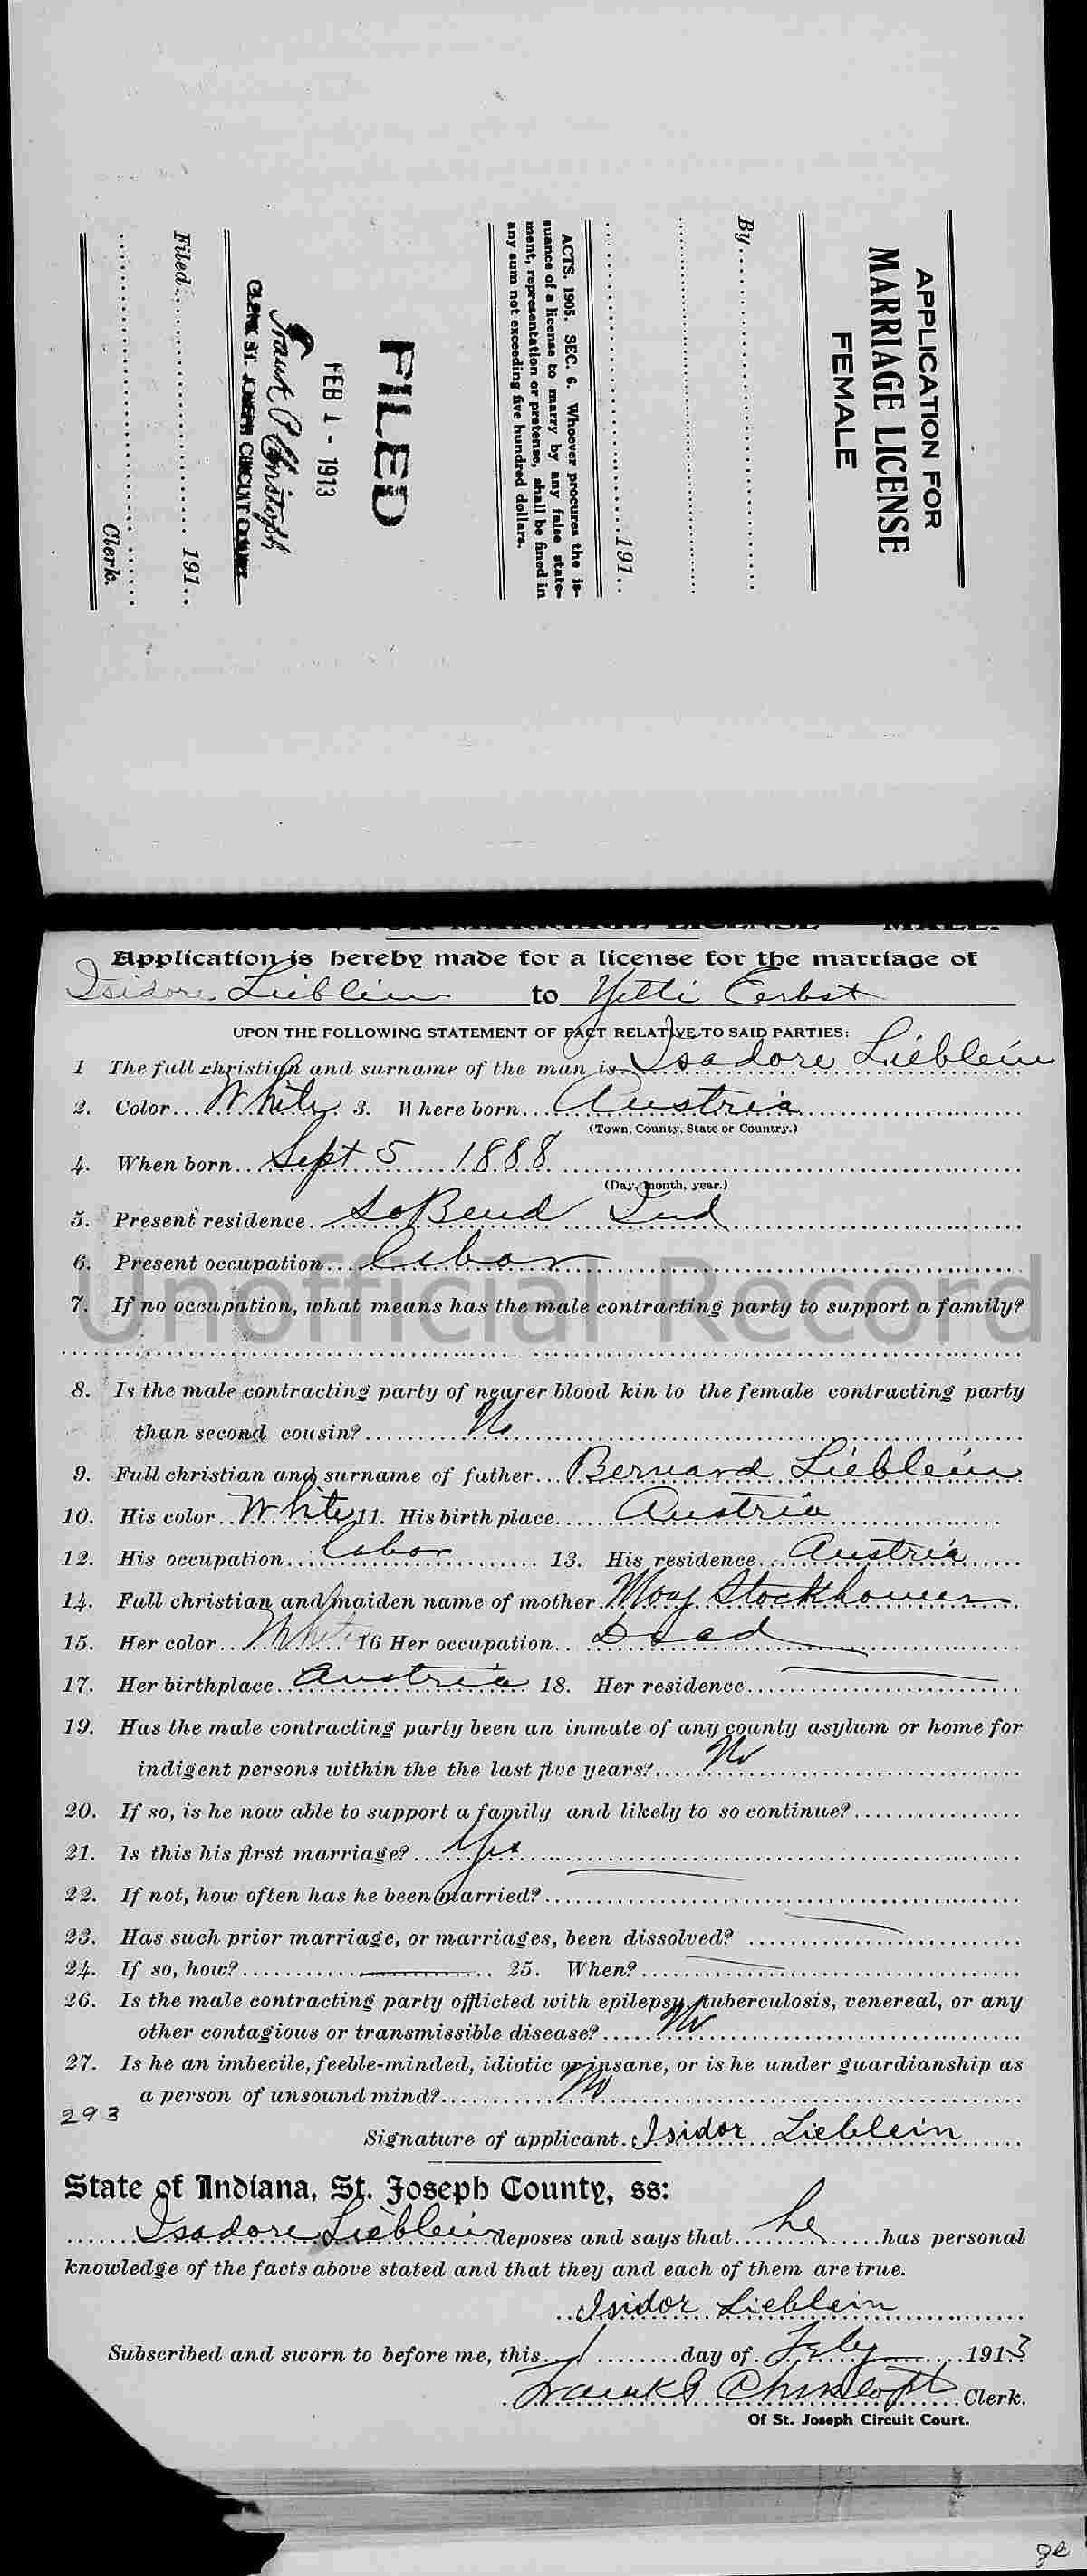 APPLICATION FOR
MARRIAGE LICENSE
FEMALE
By
191
ACTS. 1905. SEC. 6. Whoever procures the is-
suance of a license to marry by any false state-
ment, representation or pretense, shall be fined in
any sum not exceeding five hundred dollars.
FILED
FEB 1 - 1913
Frank P Christoph
CLERK ST. JOSEPH CIRCUIT COURT
Filed 191
Clerk.
MARRIAGE LICENSE MALE.
Application is hereby made for a license for the marriage of
Isidore Lieblein to Yetti Eerbst
UPON THE FOLLOWING STATEMENT OF FACT RELATIVE TO SAID PARTIES:
1 The full christian and surname of the man is Isadore Lieblein
2. Color White 3. Where born Austria
(Town, County, State or Country.)
4. When born Sept 5 1888
(Day, month, year.)
5. Present residence So Bend Ind
6. Present occupation labor
Unofficial Record
7. If no occupation, what means has the male contracting party to support a family?
8. Is the male contracting party of nearer blood kin to the female contracting party
than second cousin? No
9. Full christian and surname of father Bernard Lieblein
10. His color White 11. His birth place Austria
12. His occupation labor 13. His residence Austria
14. Full christian and maiden name of mother
15. Her color White 16 Her occupation Dead
17. Her birthplace Austria 18. Her residence
19. Has the male contracting party been an inmate of any county asylum or home for
indigent persons within the the last five years? No
20. If so, is he now able to support a family and likely to so continue?
21. Is this his first marriage? Yes
22. If not, how often has he been married?
23. Has such prior marriage, or marriages, been dissolved?
24. If so, how? 25. When?
26. Is the male contracting party afflicted with epilepsy, tuberculosis, venereal, or any
other contagious or transmissible disease? No
27. Is he an imbecile, feeble-minded, idiotic or insane, or is he under guardianship as
a person of unsound mind? No
293
Signature of applicant. Isidor Lieblein
State of Indiana, St. Joseph County, ss:
Isadore Lieblein deposes and says that he has personal
knowledge of the facts above stated and that they and each of them are true.
Isidor Lieblein
Subscribed and sworn to before me, this 1 day of Feby 1913
Frank P Christoph Clerk.
Of St. Joseph Circuit Court.